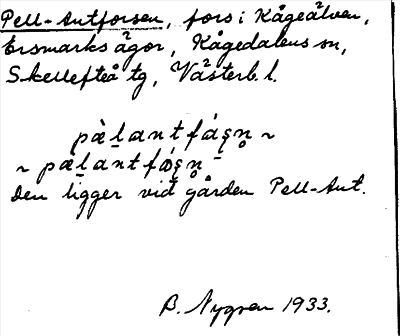 Pell-Antforsen, fors i Kågeälven,
Ersmarks ägor, Kågedalens sn,
Skellefteå tg, Västerb. l.
pæ̀l̠antfáʂn̥ ~
~ pæl̠antfɷ́ʂn̥
Den ligger vid gården Pell-Ant.
B. Nygren 1933.